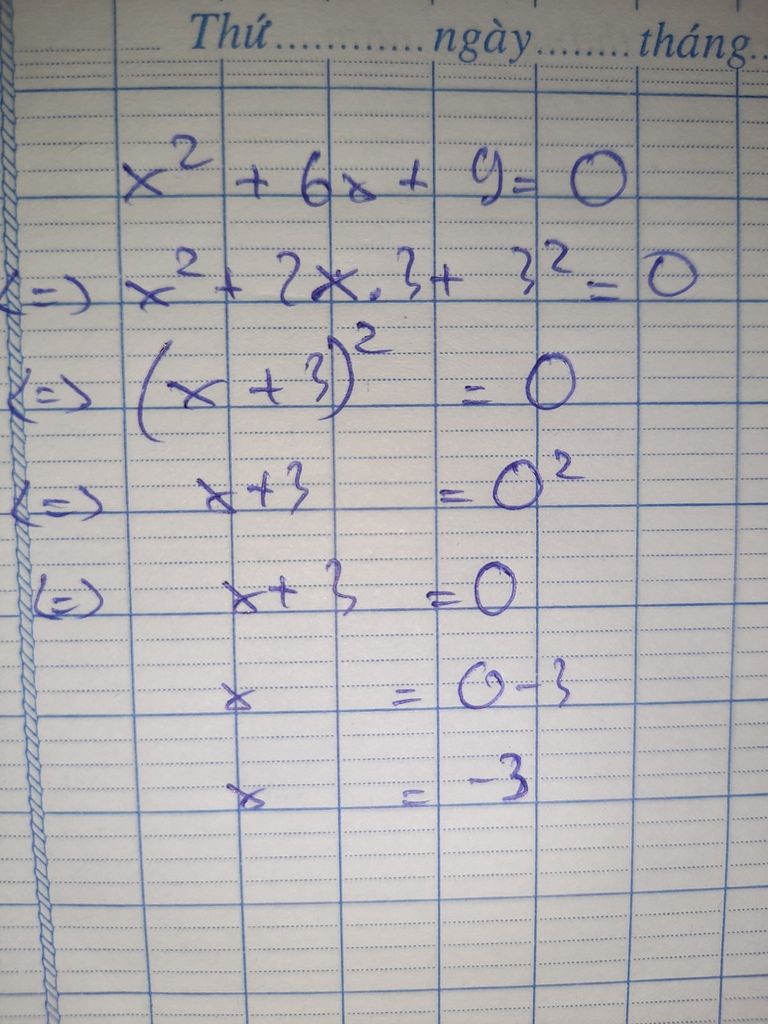 Thứ............ngày........tháng..
x² + 6x + 9 = 0
<=> x² + 2x.3 + 3² = 0
<=> (x + 3)² = 0
<=> x + 3 = 0²
<=> x + 3 = 0
x = 0 - 3
x = -3